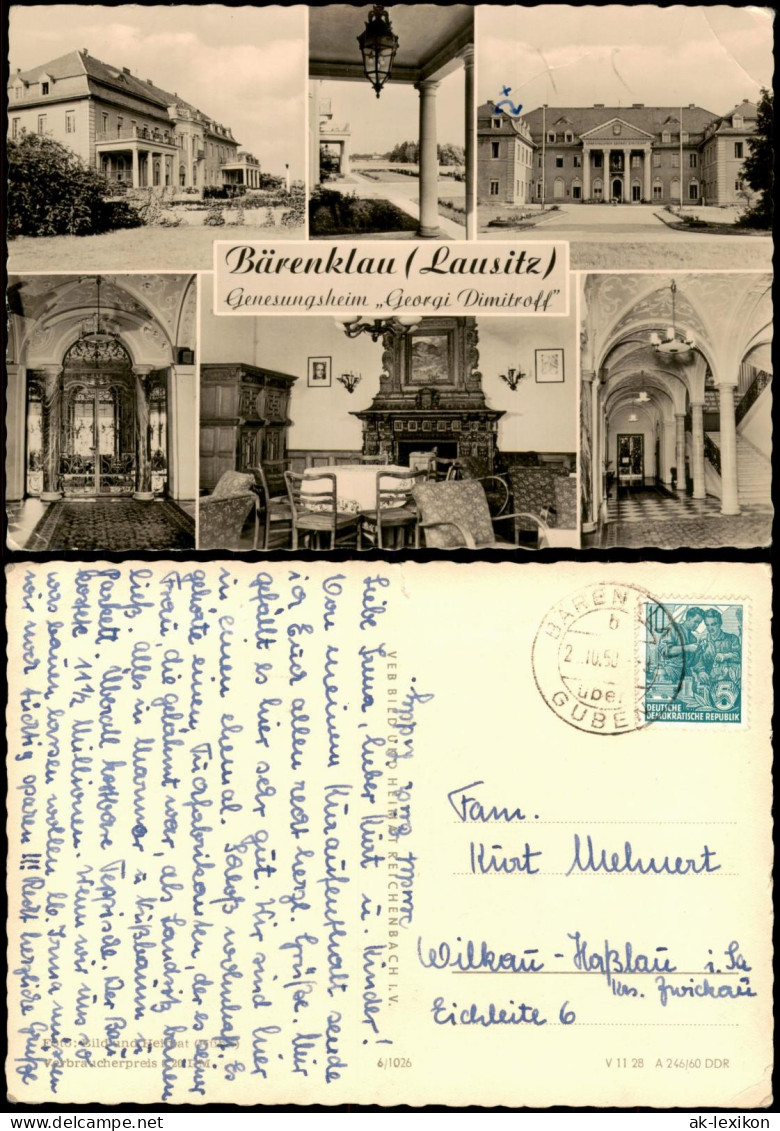 Bärenklau (Lausitz)
Genesungsheim „Georgi Dimitroff"
Liebe Irma, lieber Kurt u. Kinder!
Von meinem Kuraufenthalt sende
ich Euch allen recht herzl. Grüße. Mir
gefällt es hier sehr gut. Wir sind hier
in einem ehemal. Schloß wohnhaft. Es
gehörte einem Tuchfabrikanten, der es seiner
Frau, die gelähmt war, als Landsitz bauen
ließ. Alles in Marmor u. Nußbaum u.
Parkett. Überall kostbare Teppiche. Der Bau
kostete 11½ Millionen. Wenn wir uns so
was bauen lassen wollen lb. Irma müssen
wir noch tüchtig sparen!!! Recht herzliche Grüße
Eure
VEB BILD UND HEIMAT REICHENBACH I. V.
BÄRENKLAU
b
2.10.60
über
GUBEN
10
5
DEUTSCHE
DEMOKRATISCHE REPUBLIK
Fam.
Kurt Mehnert
Wilkau-Haßlau i. Sa
Krs. Zwickau
Eichleite 6
Foto: Bild und Heimat
Verbraucherpreis
6/1026
V 11 28 A 246/60 DDR
ak-lexikon